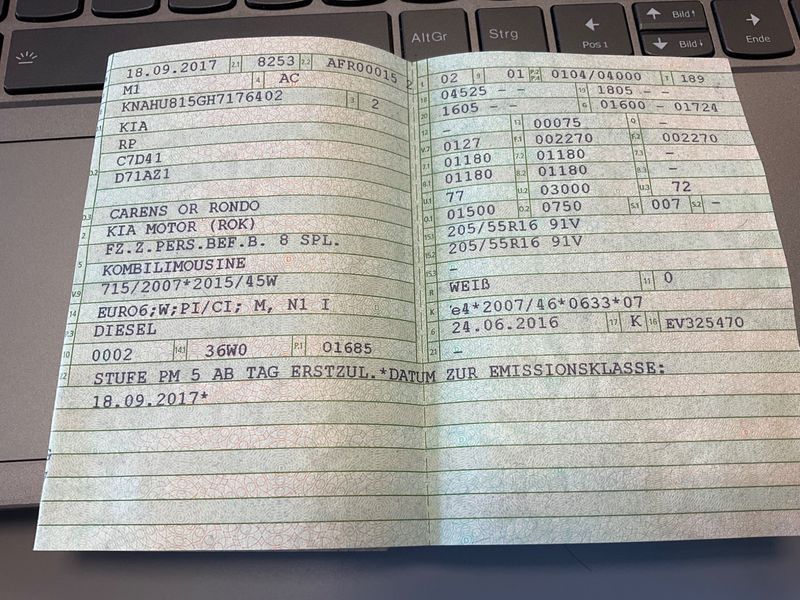 AltGr Strg Pos 1 Bild↑ Bild↓ Ende
18.09.2017 2.1 8253 2.2 AFR00015 2
M1 4 AC
KNAHU815GH7176402 3 2
KIA
RP
C7D41
D.2 D71AZ1
D.3 CARENS OR RONDO
2 KIA MOTOR (ROK)
FZ.Z.PERS.BEF.B. 8 SPL.
5 KOMBILIMOUSINE
V.9 715/2007*2015/45W
14 EURO6;W;PI/CI; M, N1 I
P.3 DIESEL
10 0002 14.1 36W0 P.1 01685
22 STUFE PM 5 AB TAG ERSTZUL.*DATUM ZUR EMISSIONSKLASSE:
18.09.2017*
L 02 9 01 P.2 P.4 0104/04000 T 189
18 04525 - - 19 1805 - -
20 1605 - - G 01600 - 01724
12 - 13 00075 Q -
V.7 0127 F.1 002270 F.2 002270
7.1 01180 7.2 01180 7.3 -
8.1 01180 8.2 01180 8.3 -
U.1 77 U.2 03000 U.3 72
O.1 01500 O.2 0750 S.1 007 S.2 -
15.1 205/55R16 91V
15.2 205/55R16 91V
15.3 -
R WEIß 11 0
K e4*2007/46*0633*07
6 24.06.2016 17 K 16 EV325470
21 -